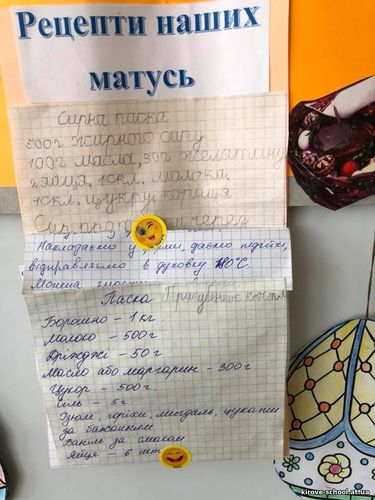 Рецепти наших
матусь
Сирна паска
500г жирного сиру
100г масла, 30г желатину
2 яйця, 1скл. молока.
1скл. цукру, кориця
Сир через
Накладаємо у форми, даємо підійти,
відправляємо в духовку
Можна
Паска
Борошно – 1 кг
Молоко – 500г
Дріжджі – 50 г
Масло або маргарин – 300г
Цукор – 500г.
Сіль – 5г
Ізюм, горіхи, мигдаль, цукати
за бажанням
Ваніль за смаком
Яйце – 6 шт
kirove-school.at.ua